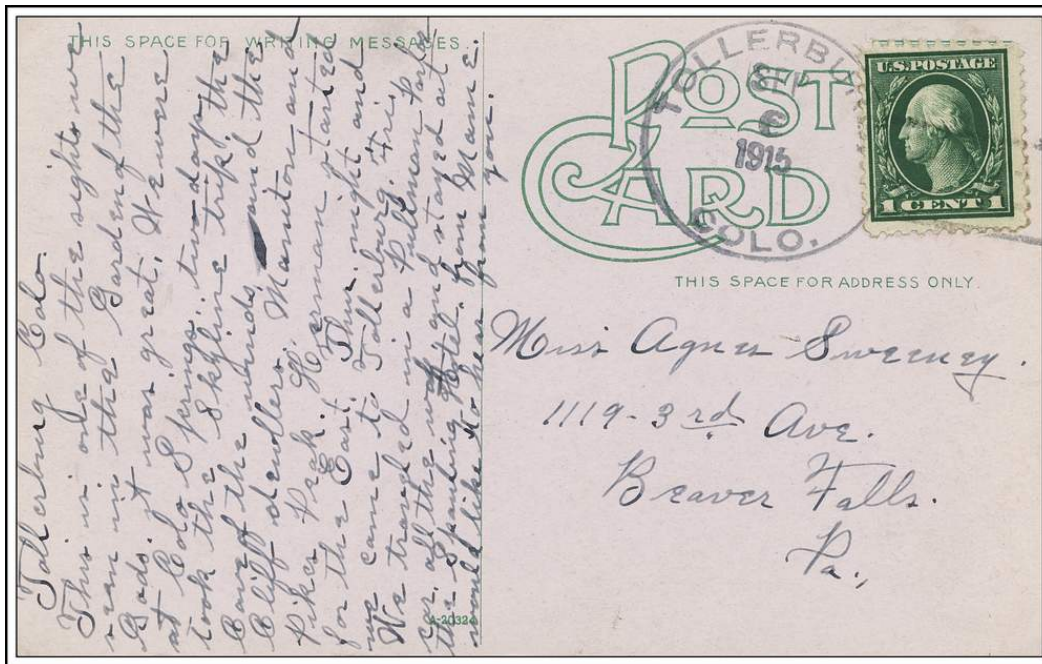 THIS SPACE FOR WRITING MESSAGES.
Tollerburg Colo.
This is one of the sights we
seen in the Garden of the
Gods. it was great. We were
at Colo Springs. two days
took the Skyline trip the
Cave of the winds, and the
Cliff dwellers Manitou and
Pikes Peak. Herman started
for the East. Thur. night and
we came to Tollerburg. Fri.
We traveled in a Pullman Parlor
car all the way and stayed at
the Spaulding Hotel.
would like to hear from
you.
from Mame.
A-20324
POST CARD
TOLLERBU
SEP
6
1915
COLO.
U.S. POSTAGE
1 CENT 1
THIS SPACE FOR ADDRESS ONLY.
Miss Agnes Sweeney.
1119-3rd Ave.
Beaver Falls.
Pa.,